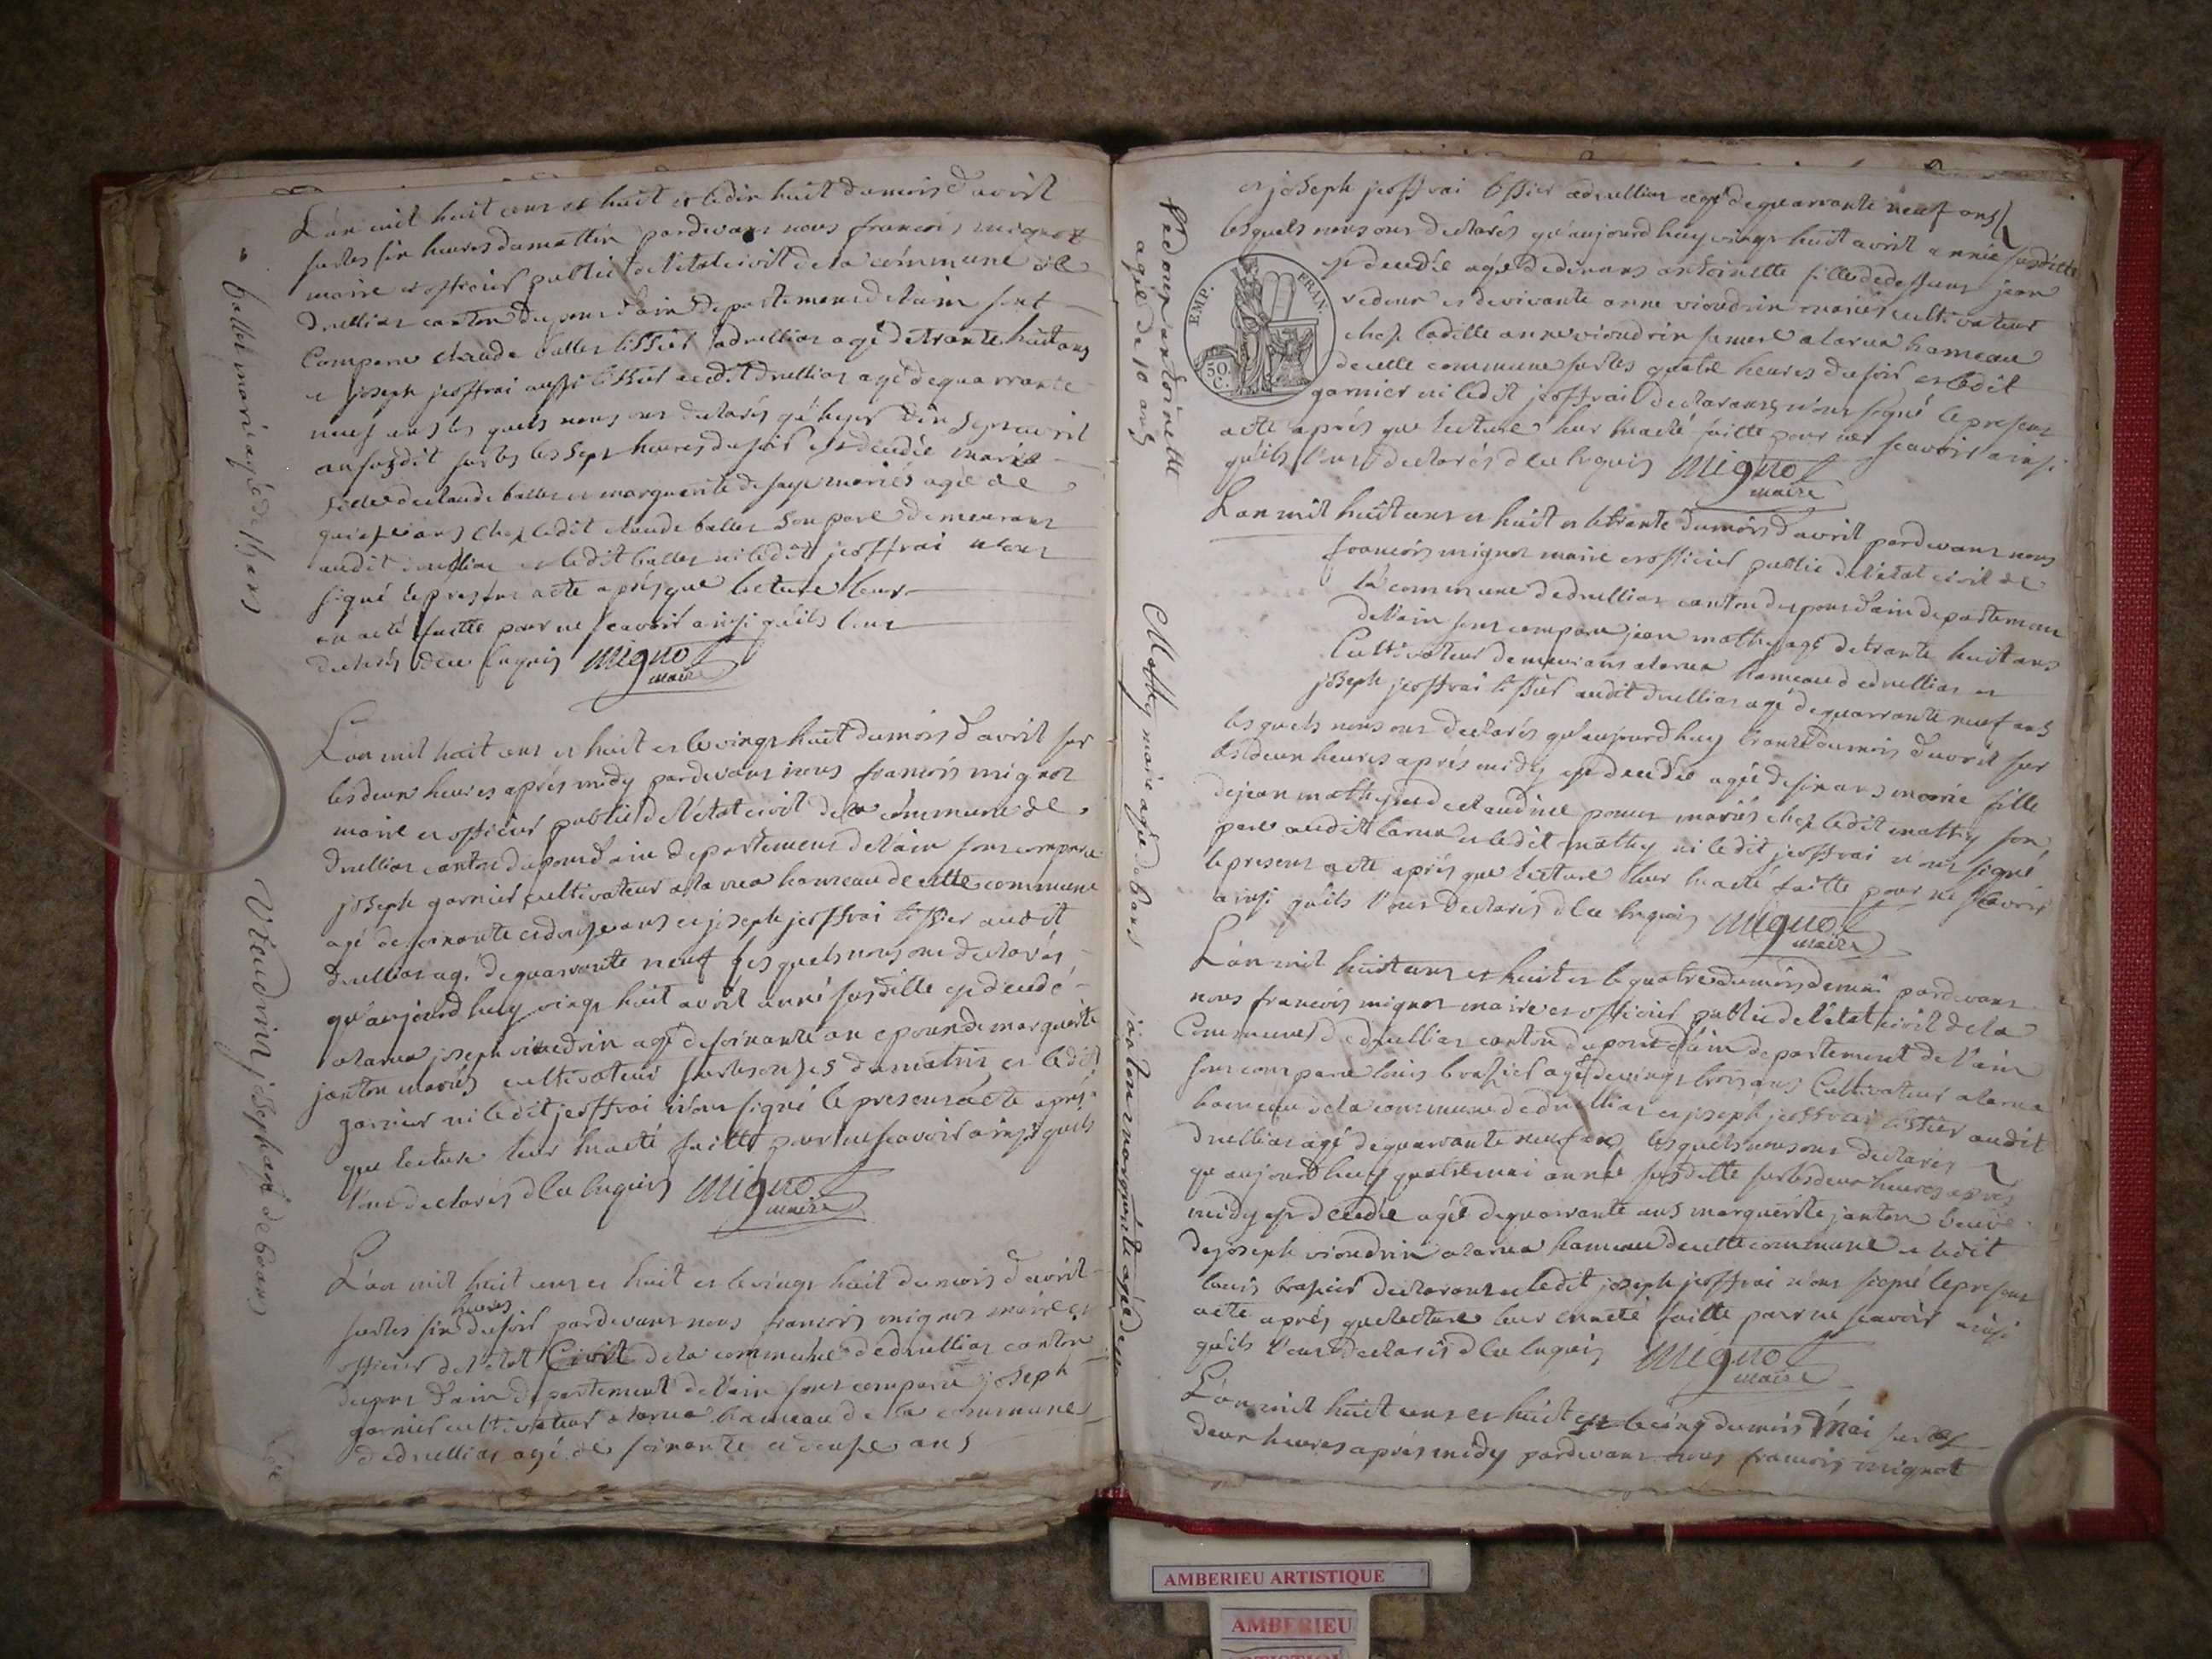 L'an mil huit cent et huit et le dix huit du mois d'avril
sur les six heures du mattin pardevant nous francois mignot
maire et officier public de l'état civil de la commune de
druillias canton du pont d'ain departement de l'ain sont
Comparu claude ballet tissier a druillias agé de trante huit ans
et joseph jeoffrai aussi tissier audit druillias agé de quarrante
neuf ans les quels nous ont declarés qu'hyer dix sept avril
an susdit sur les les sept heures du soir est decedée marie
fille de claude ballet et marguerite mariés agée de
quinze ans chez ledit claude ballet son pere demeurant
audit druillias et ledit ballet ni ledit jeoffrai n'ont
signé le present acte après que lecture leur
en a eté faitte pour ne scavoir ainsi qu'ils l'ont
declarés de ce enquis mignot
maire
ballet marie agée de 15 ans
L'an mil huit cent et huit et le vingt huit du mois d'avril sur
les deux heures après midy pardevant nous francois mignot
maire et officier public de l'état civil de la commune de
druillias canton du pont d'ain departement de l'ain sont comparu
joseph garnier cultivateur a la rua hameau de cette commune
agé de soixante et douze ans et joseph jeoffrai tissier audit
druillias agé de quarrante neuf les quels nous ont declarés
qu'aujourd'huy vingt huit avril anné susditte est decedé
a larua joseph vieudrin agé de soixante an epoux de marguerite
janton mariés cultivateur sur les onzes du matin et ledit
garnier ni ledit jeoffrai n'ont signé le present acte après
que lecture leur en a eté faitte pour ne scavoir ainsi qu'ils
l'ont declarés de ce enquis mignot
maire
Vieudrin joseph agé de 60 ans
L'an mil huit cent et huit et le vingt huit du mois d'avril
sur les six heures du soir pardevant nous francois mignot maire et
officier de l'état Civil de la commune de druillias canton
du pont d'ain departement de l'ain sont comparu joseph
garnier cultivateur a larua hameau de la commune
de druillias agé de soixante et douze ans
et joseph jeoffrai tissier a druillias agé de quarrante neuf ans
les quels nous ont declarés qu'aujourd'huy vingt huit avril année susditte
est decedée agée de dix ans antoinette fille de deffunt jean
vedeur et de vivante anne vioudrin mariés cultivateur
chez laditte anne vioudrin sa mere a larua hameau
de cette commune sur les quatre heures du soir et ledit
garnier ni ledit jeoffrai declarants n'ont signé le present
acte après que lecture leur en a eté faitte pour ne scavoir ainsi
qu'ils l'ont declarés de ce enquis mignot
maire
antoinette
agée de 10 ans
EMP. FRAN.
50 C.
L'an mil huit cent et huit et le trante du mois d'avril pardevant nous
francois mignot maire et officier public de l'état civil de
la commune de druillias canton du pont d'ain departement
de l'ain sont comparu jean mathy agé de trante huit ans
Cultivateur demeurant a larua hameau de druillias et
joseph jeoffrai tissier audit druillias agé de quarrante neuf ans
les quels nous ont declarés qu'aujourd'huy trante du mois d'avril sur
les deux heures après midy est decedée agée de six ans marie fille
de jean mathy et de claudine mariés chez ledit mathy son
pere audit larua et ledit mathy ni ledit jeoffrai n'ont signé
le present acte après que lecture leur en a eté faitte pour ne scavoir
ainsi qu'ils l'ont declarés de ce enquis mignot
maire
Mathy marie agée de 6 ans
L'an mil huit cent et huit et le quatre du mois de mai pardevant
nous francois mignot maire et officier public de l'état civil de la
Commune de druillias canton du pont d'ain departement de l'ain
sont comparu louis brasier agé de vingt trois ans Cultivateur a larua
hameau de la commune de druillias et joseph jeoffrai tissier audit
druillias agé de quarrante neuf ans les quels nous ont declarés
qu'aujourd'huy quatre mai année susditte sur les deux heures après
midy est decedée agée de quarrante ans marguerite janton veuve
de joseph vioudrin a larua hameau de cette commune et ledit
louis brasier declarant et ledit joseph jeoffrai n'ont signé le present
acte après que lecture leur en a eté faitte pour ne scavoir ainsi
qu'ils l'ont declarés de ce enquis mignot
maire
janton marguerite agée de
L'an mil huit cent et huit et le cinq du mois mai sur les
deux heures après midy pardevant nous francois mignot
AMBERIEU ARTISTIQUE
AMBERIEU
ARTISTIQUE